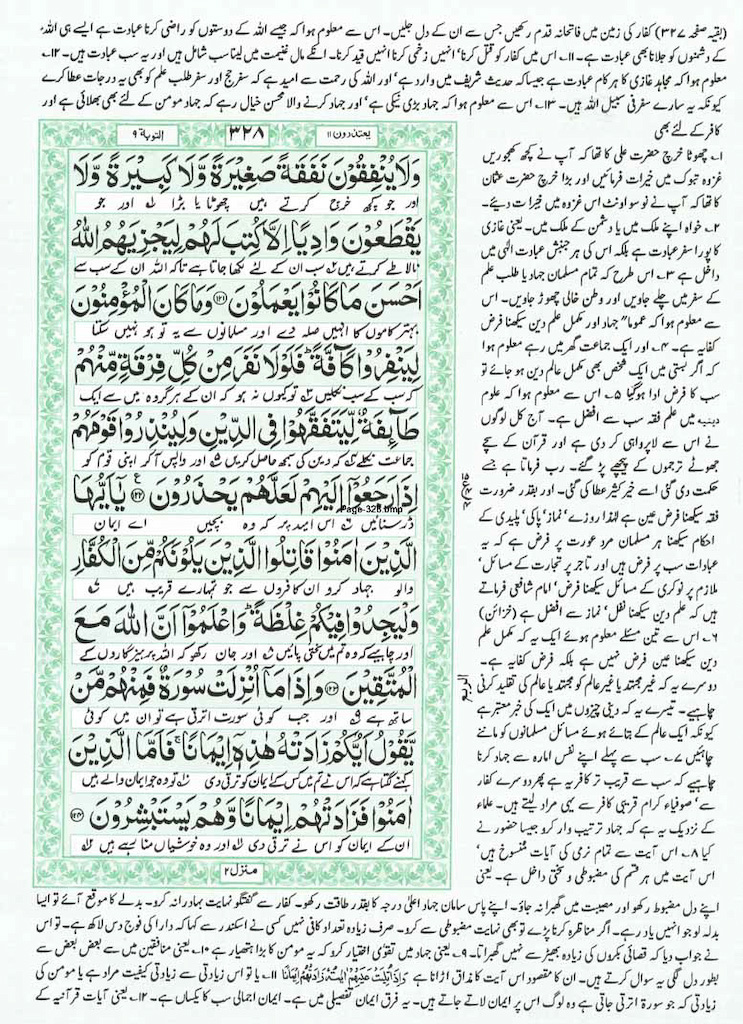 (بقیہ صفحہ ۳۲۷) کفار کی زمین میں فاتحانہ قدم رکھیں جس سے ان کے دل جلیں۔ اس سے معلوم ہوا کہ جیسے اللہ کے دوستوں کو راضی کرنا عبادت ہے ایسے ہی اللہ
کے دشمنوں کو جلانا بھی عبادت ہے۔ ۱۱؎ اس میں کفار کو قتل کرنا' انہیں زخمی کرنا انہیں قید کرنا۔ انکے مال غنیمت میں لینا سب شامل ہیں اور یہ سب عبادت ہیں۔ ۱۲؎
معلوم ہوا کہ مجاہد غازی کا ہر کام عبادت ہے جیسا کہ حدیث شریف میں وارد ہے' اور اللہ کی رحمت سے امید ہے کہ سفر حج اور سفر طلب علم کو بھی یہ درجات عطا کرے
کیونکہ یہ سارے سفر فی سبیل اللہ ہیں۔ ۱۳؎ اس سے معلوم ہوا کہ جہاد بڑی نیکی ہے' اور جہاد کرنے والا محسن خیال رہے کہ جہاد مومن کے لئے بھی بھلائی ہے اور
کافر کے لئے بھی
یعتذرون ۱۱
۳۲۸
التوبۃ ۹
وَلَا يُنْفِقُوْنَ نَفَقَةً صَغِيْرَةً وَّلَا كَبِيْرَةً وَّلَا
اور جو کچھ خرچ کرتے ہیں چھوٹا یا بڑا اور جو
يَقْطَعُوْنَ وَادِيًا اِلَّا كُتِبَ لَهُمْ لِيَجْزِيَهُمُ اللّٰهُ
نالا طے کرتے ہیں سب ان کے لئے لکھا جاتا ہے تاکہ اللہ ان کے سب سے
اَحْسَنَ مَا كَانُوْا يَعْمَلُوْنَ ۝۱۲۱ وَمَا كَانَ الْمُؤْمِنُوْنَ
بہتر کاموں کا انہیں صلہ دے اور مسلمانوں سے یہ تو ہو نہیں سکتا
لِيَنْفِرُوْا كَآفَّةً ؕ فَلَوْلَا نَفَرَ مِنْ كُلِّ فِرْقَةٍ مِّنْهُمْ
کہ سب کے سب نکلیں تو کیوں نہ ہو کہ ان کے ہر گروہ میں سے ایک
طَآئِفَةٌ لِّيَتَفَقَّهُوْا فِي الدِّيْنِ وَلِيُنْذِرُوْا قَوْمَهُمْ
جماعت نکلے کہ دین کی سمجھ حاصل کریں اور واپس آ کر اپنی قوم کو
اِذَا رَجَعُوْٓا اِلَيْهِمْ لَعَلَّهُمْ يَحْذَرُوْنَ ۝۱۲۲ يٰٓاَيُّهَا
Page-328.bmp
ڈر سنائیں اس امید پر کہ وہ بچیں اے ایمان
الَّذِيْنَ اٰمَنُوْا قَاتِلُوا الَّذِيْنَ يَلُوْنَكُمْ مِّنَ الْكُفَّارِ
والو جہاد کرو ان کافروں سے جو تمہارے قریب ہیں
وَلْيَجِدُوْا فِيْكُمْ غِلْظَةً ؕ وَاعْلَمُوْٓا اَنَّ اللّٰهَ مَعَ
اور چاہیے کہ وہ تم میں سختی پائیں اور جان رکھو کہ اللہ پرہیزگاروں کے
الْمُتَّقِيْنَ ۝۱۲۳ وَاِذَا مَآ اُنْزِلَتْ سُوْرَةٌ فَمِنْهُمْ مَّنْ
ساتھ ہے اور جب کوئی سورت اترتی ہے تو ان میں کوئی
يَّقُوْلُ اَيُّكُمْ زَادَتْهُ هٰذِهٖٓ اِيْمَانًا ۚ فَاَمَّا الَّذِيْنَ
کہنے لگتا ہے کہ اس نے تم میں کس کے ایمان کو ترقی دی تو وہ جو ایمان والے ہیں
اٰمَنُوْا فَزَادَتْهُمْ اِيْمَانًا وَّهُمْ يَسْتَبْشِرُوْنَ ۝۱۲۴
ان کے ایمان کو اس نے ترقی دی اور وہ خوشیاں منا رہے ہیں
منزل ۲
الربع
۱؎ چھوٹا خرچ حضرت علی کا تھا کہ آپ نے کچھ کھجوریں
غزوہ تبوک میں خیرات فرمائیں اور بڑا خرچ حضرت عثمان
کا تھا کہ آپ نے نو سو اونٹ اس غزوہ میں خیرات دیئے۔
۲؎ خواہ اپنے ملک میں یا دشمن کے ملک میں۔ یعنی غازی
کا پورا سفر عبادت ہے بلکہ اس کی ہر جنبش عبادت الٰہی میں
داخل ہے ۳؎ اس طرح کہ تمام مسلمان جہاد یا طلب علم
کے سفر میں چلے جاویں اور وطن خالی چھوڑ جاویں۔ اس
سے معلوم ہوا کہ عموما" جہاد اور مکمل علم دین سیکھنا فرض
کفایہ ہے۔ ۴؎ اور ایک جماعت گھر میں رہے معلوم ہوا
کہ اگر بستی میں ایک شخص بھی مکمل عالم دین ہو جائے تو
سب کا فرض ادا ہو گیا ۵؎ اس سے معلوم ہوا کہ علوم
دینیہ میں علم فقہ سب سے افضل ہے۔ آج کل لوگوں
نے اس سے لاپرواہی کر دی ہے اور قرآن کے سچے
جھوٹے ترجموں کے پیچھے پڑ گئے۔ رب فرماتا ہے جسے
حکمت دی گئی اسے خیر کثیر عطا کی گئی۔ اور بقدر ضرورت
فقہ سیکھنا فرض عین ہے لہٰذا روزے' نماز' پاکی' پلیدی کے
احکام سیکھنا ہر مسلمان مرد عورت پر فرض ہے کہ یہ
عبادات سب پر فرض ہیں اور تاجر پر تجارت کے مسائل'
ملازم پر نوکری کے مسائل سیکھنا فرض' امام شافعی فرماتے
ہیں کہ علم دین سیکھنا نفل' نماز سے افضل ہے (خزائن)
۶؎ اس سے تین مسئلے معلوم ہوئے ایک یہ کہ مکمل علم
دین سیکھنا عین فرض نہیں ہے بلکہ فرض کفایہ ہے۔
دوسرے یہ کہ غیر مجتہد یا غیر عالم کو مجتہد یا عالم کی تقلید کرنی
چاہیے۔ تیسرے یہ کہ دینی چیزوں میں ایک کی خبر معتبر ہے
کیونکہ ایک عالم کے بتائے ہوئے مسائل مسلمانوں کو ماننے
چاہئیں ۷؎ سب سے پہلے اپنے نفس امارہ سے جہاد کرنا
چاہیے کہ سب سے قریب تر کافر یہ ہے پھر دوسرے کفار
سے' صوفیاء کرام قریبی کافر سے یہی مراد لیتے ہیں۔ علماء
کے نزدیک یہ ہے کہ جہاد ترتیب وار کرو جیسا حضور نے
کیا ۸؎ اس آیت سے تمام نرمی کی آیات منسوخ ہیں'
اس آیت میں ہر قسم کی مضبوطی و سختی داخل ہے۔ یعنی
اپنے دل مضبوط رکھو اور مصیبت میں گھبرا نہ جاؤ۔ اپنے پاس سامان جہاد اعلیٰ درجہ کا بقدر طاقت رکھو۔ کفار سے گفتگو نہایت بہادرانہ کرو۔ بدلے کا موقع آئے تو ایسا
بدلہ لو جو انہیں یاد رہے۔ اگر مناظرہ کرنا پڑے تو بھی نہایت مضبوطی سے کرو۔ صرف زیادہ تعداد کافی نہیں کسی نے اسکندر سے کہا کہ دارا کی فوج دس لاکھ ہے۔ تو اس
نے جواب دیا کہ قصائی بکروں کی زیادہ بھیڑ سے نہیں گھبراتا۔ ۹؎ یعنی جہاد میں تقویٰ اختیار کرو کہ یہ مومن کا بڑا ہتھیار ہے ۱۰؎ یعنی منافقین میں سے بعض بعض سے
بطور دل لگی یہ سوال کرتے ہیں۔ ان کا مقصود اس آیت کا مذاق اڑانا ہے وَاِذَا تُلِيَتْ عَلَيْهِمْ اٰيٰتُهٗ زَادَتْهُمْ اِيْمَانًا ۱۱؎ یا تو اس زیادتی سے زیادتی کیفیت مراد ہے یا مومن کی
زیادتی کہ جو سورۃ اترتی جاتی ہے وہ لوگ اس پر ایمان لاتے جاتے ہیں۔ یہ فرق ایمان تفصیلی میں ہے۔ ایمان اجمالی سب کا یکساں ہے۔ ۱۲؎ یعنی آیات قرآنیہ کے